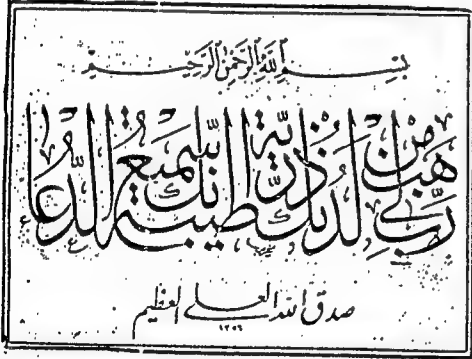 بسم الله الرحمن الرحيم
رب هب لي من لدنك ذرية طيبة إنك سميع الدعاء
صدق الله العلي العظيم